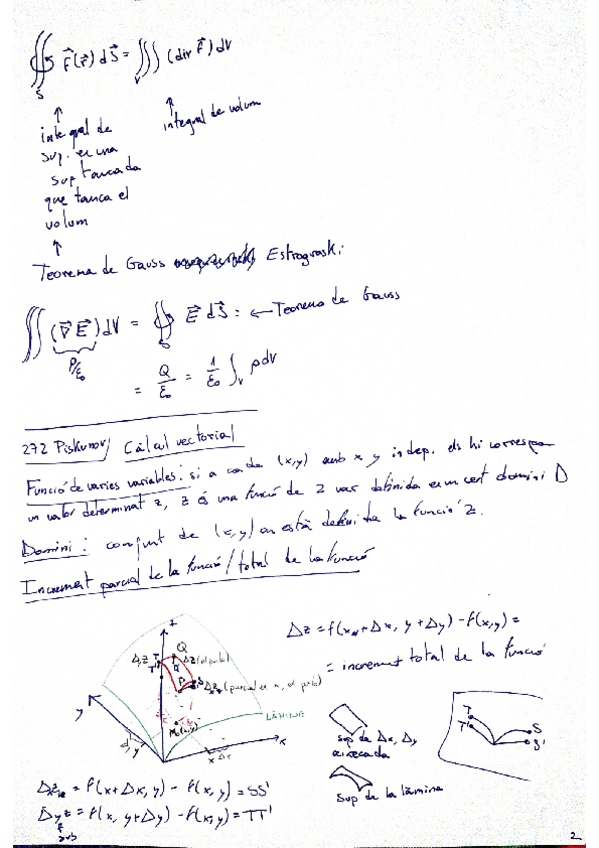 ∯_S F⃗(r⃗) dS⃗ = ∭_V (div F⃗) dV
↑ integral de sup. en una sup tancada que tanca el volum
↑ integral de volum
↑
Teorema de Gauss Estrograski
∭ (∇⃗ E⃗) dV = ∯_S E⃗ dS⃗ : ← Teorema de Gauss
ρ/ε₀
= Q/ε₀ = 1/ε₀ ∫_V ρdV
272 Piskunov/ Càlcul vectorial
Funció de varies variables: si a cada (x,y) amb x y indep. els hi correspon
un valor determinat z, z és una funció de 2 var definida en un cert domini D
Domini: conjunt de (x,y) on està definida la funció z.
Increment parcial de la funció / total de la funció
Δz = f(x+Δx, y+Δy) - f(x,y) =
= increment total de la funció
z
Q
T
T'
Q'
P
S
y
x
Δx
LÀMINA
T
T'
S
S'
sup de Δx, Δy
aixecada
sup de la làmina
Δₓz = f(x+Δx, y) - f(x, y) = SS'
Δ_y z = f(x, y+Δy) - f(x, y) = TT'
sub
2